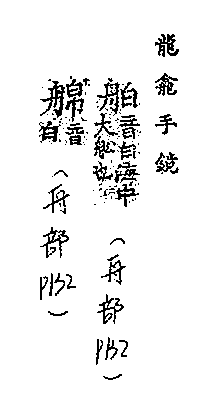 龍龕手鏡
舶音白海中大舩也(舟部P132)
音白(舟部P132)